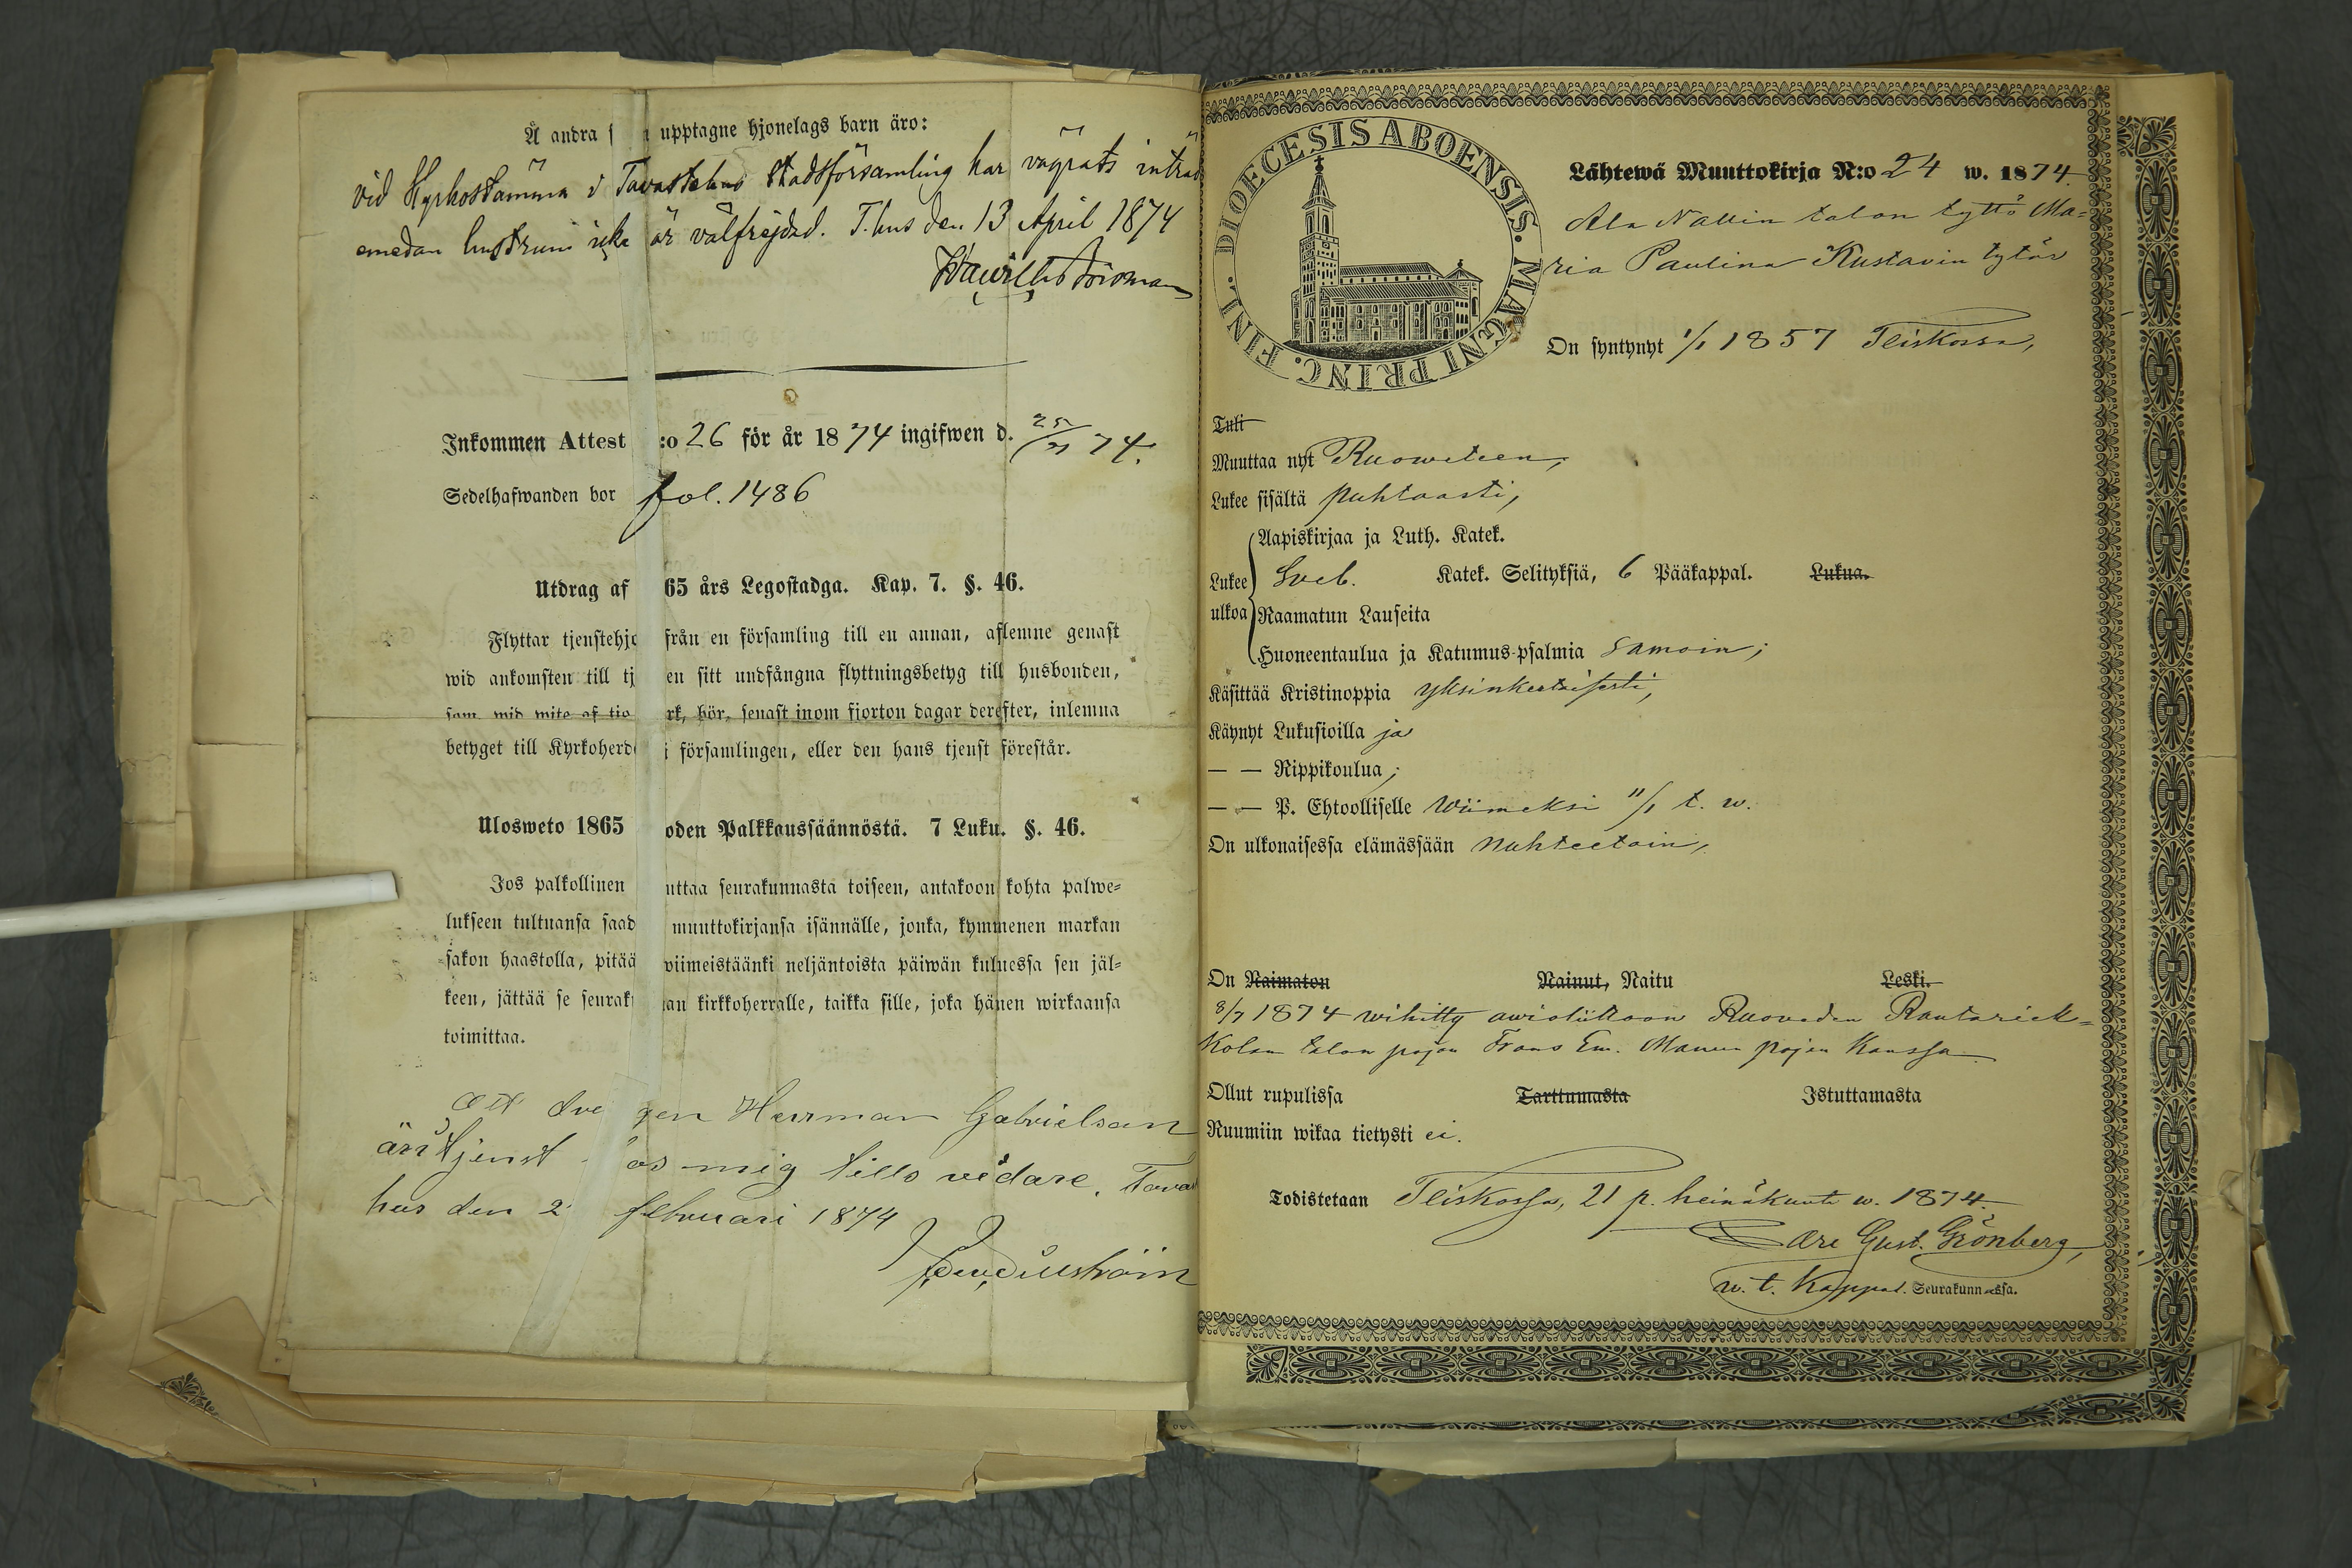 Å andra s upptagne hjonelags barn äro:
vid Kyrkostämma i Tavastehus Stadsförsamling har vägrats inträd
emedan hustrun icke är välfrejdad. T:hus den 13 April 1874
Inkommen Attest :o 26 för år 1874 ingifwen d. 25/7 74.
Sedelhafwanden bor fol. 1486
Utdrag af 65 års Legostadga. Kap. 7. §. 46.
Flyttar tjenstehjo från en församling till en annan, aflemne genast
wid ankomsten till tj en sitt undfångna flyttningsbetyg till husbonden,
som, wid wite af tio rk, bör, senast inom fjorton dagar derefter, inlemna
betyget till Kyrkoherde i församlingen, eller den hans tjenst förestår.
Ulosweto 1865 oden Palkkaussäännöstä. 7 Luku. §. 46.
Jos palkollinen uttaa seurakunnasta toiseen, antakoon kohta palwe=
lukseen tultuansa saad muuttokirjansa isännälle, jonka, kymmenen markan
sakon haastolla, pitää wiimeistäänki neljäntoista päiwän kuluessa sen jäl=
keen, jättää se seurak nan kirkkoherralle, taikka sille, joka hänen wirkaansa
toimittaa.
Att dre gen Herrman Gabrielsson
är i tjenst os mig tills vidare. Tava
hus den 2 februari 1874
DIOECESIS ABOENSIS. MAGNI PRINC. FINL.
Lähtewä Muuttokirja N:o 24 w. 1874.
Ala Nallin talon tyttö Ma=
ria Paulina Kustavin tytär
On syntynyt 1/1 1857 Teiskossa,
Tuli
Muuttaa nyt Ruoweteen,
Lukee sisältä puhtaasti,
Aapiskirjaa ja Luth. Katek.
Lukee ulkoa Sveb. Katek. Selityksiä, 6 Pääkappal. Lukua.
Raamatun Lauseita
Huoneentaulua ja Katumus-psalmia samoin;
Käsittää Kristinoppia yksinkertaisesti,
Käynyt Lukusioilla ja
— — Rippikoulua;
— — P. Ehtoolliselle Wiimeksi 11/1 t. w.
On ulkonaisessa elämässään nuhteetoin,
On Naimaton Nainut, Naitu Leski.
8/7 1874 wihitty awioliittoon Ruoveden Rautarick=
kolan talon pojan Frans Em. Manun pojan kanssa
Ollut rupulissa Tarttumasta Istuttamasta
Ruumiin wikaa tietysti ei.
Todistetaan Teiskossa, 21 p. heinäkuuta w. 1874.
Care Gust. Grönberg,
w. t. Kappal. Seurakunnassa.